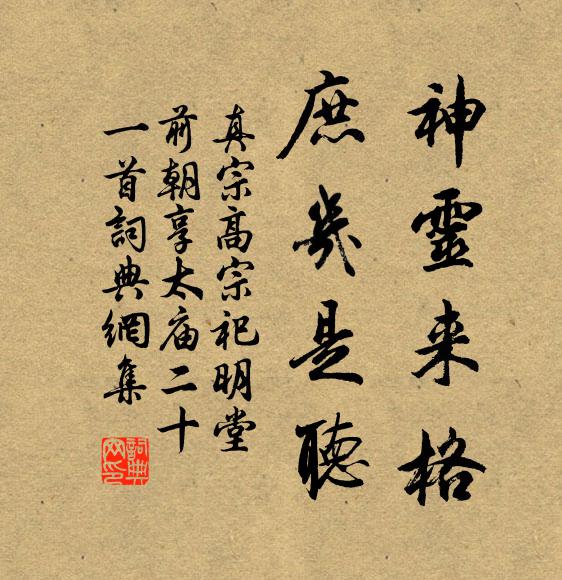 神靈来格
庶幾是聽
真宗高宗祀明堂
前朝享太庙二十
一首詞典網集
詞典网印